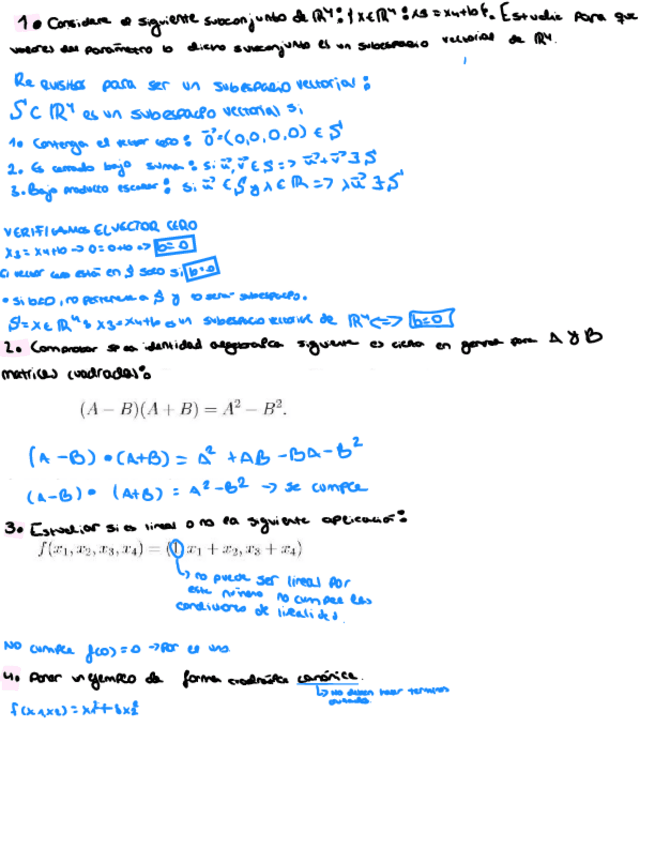 1. Considere el siguiente subconjunto de ℝ⁴: {x∈ℝ⁴: x3 = x4+b}. Estudie para que
valores del parámetro b dicho subconjunto es un subespacio vectorial de ℝ⁴.
Requisitos para ser un subespacio vectorial:
S ⊂ ℝ⁴ es un subespacio vectorial si
1. Contenga el vector cero: 0⃗=(0,0,0,0) ∈ S
2. Es cerrado bajo suma: si u⃗,v⃗ ∈ S => u⃗+v⃗ ∃ S
3. Bajo producto escalar: si u⃗ ∈ S y λ ∈ ℝ => λu⃗ ∃ S
VERIFICAMOS EL VECTOR CERO
x3 = x4+b -> 0=0+b => b=0
El vector cero está en S solo si b=0
• si b≠0, no pertenece a S y no será subespacio.
S=x∈ℝ⁴: x3=x4+b es un subespacio vectorial de ℝ⁴ <=> b=0
2. Comprobar si la identidad algebraica siguiente es cierta en general para A y B
matrices cuadradas:
(A − B)(A + B) = A² − B².
(A-B)•(A+B) = A² + AB - BA - B²
(A-B)• (A+B) = A²-B² -> se cumple
3. Estudiar si es lineal o no la siguiente aplicación:
f(x₁, x₂, x₃, x₄) = (1, x₁ + x₂, x₃ + x₄)
↳ no puede ser lineal por
este número no cumple las
condiciones de linealidad.
No cumple f(0)=0 -> Por el uno
4. Poner un ejemplo de forma cuadrática canónica.
↳ No deben haber términos
f(x1,x2) = x₁²+3x₂²